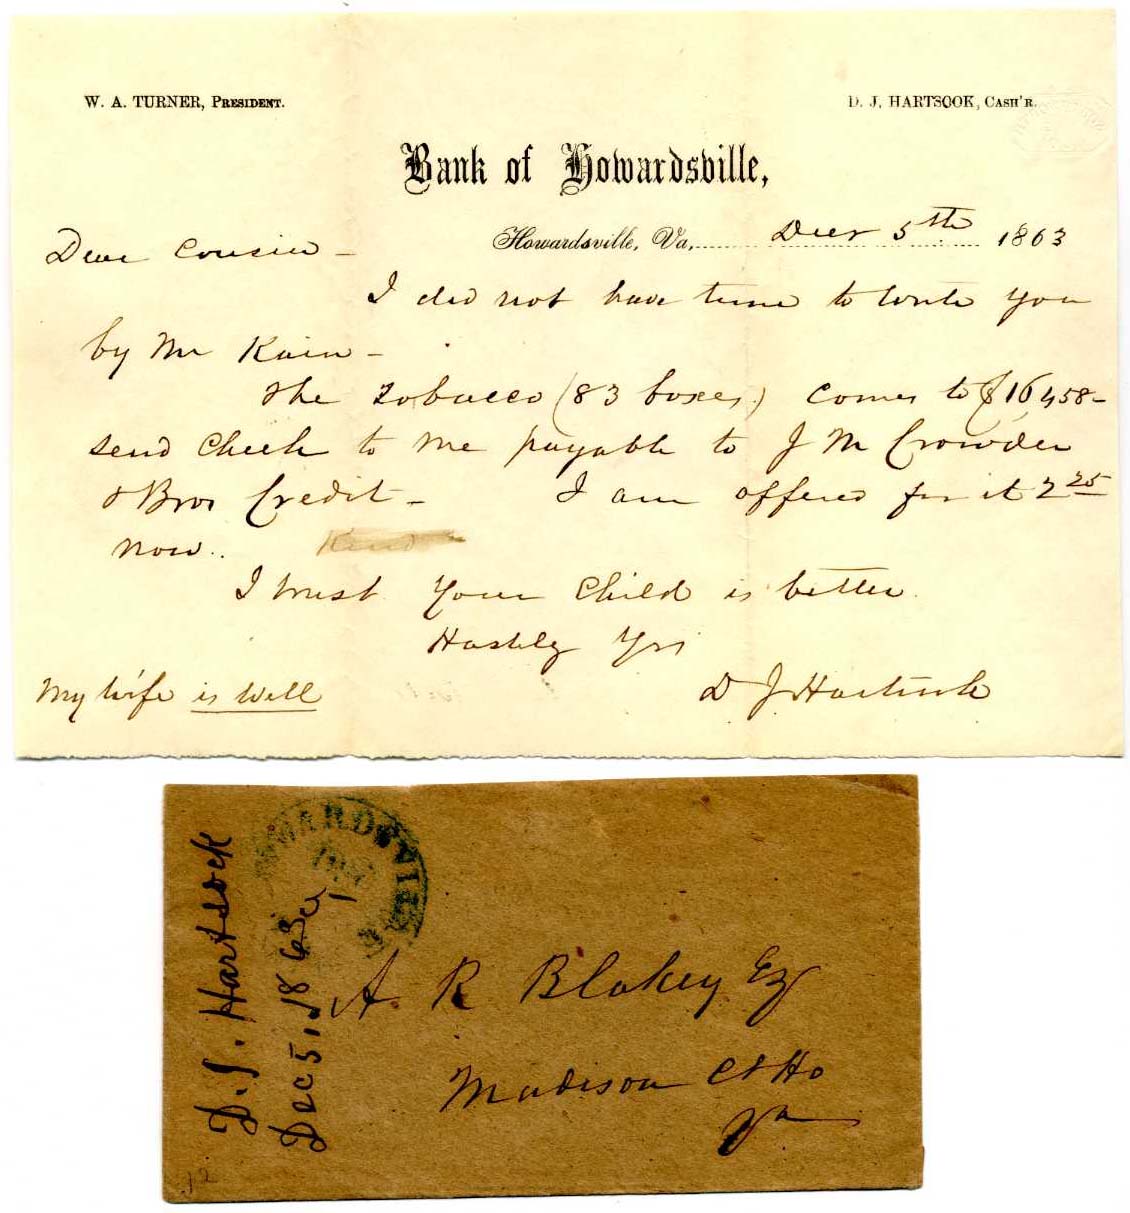 W. A. TURNER, PRESIDENT.
D. J. HARTSOOK, CASH'R.
Bank of Howardsville,
Howardsville, Va, Decr 5th 1863
Dear Cousin -
I did not have time to write you
by Mr Kain -
The Tobacco (83 boxes) comes to $16,458-
send Check to me payable to J M Crowder
& Bros Credit - I am offered for it 2 25
now.. Kind
I trust your Child is better.
Hastily Yrs
D J Hartsook
My wife is well
D. J. Hartsook
Dec 5, 1863
HOWARDSVILLE
A. R Blakey Esq
Madison Ct Ho
Va
12